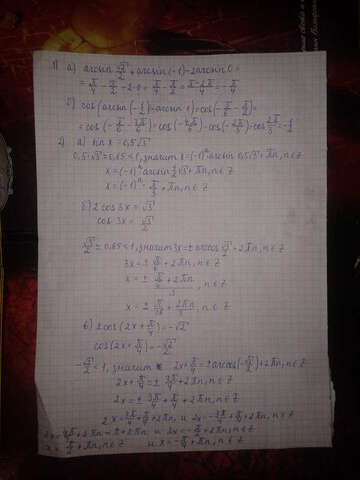 1) а) arcsin √2/2 + arcsin(-1) - 2arcsin 0 =
= π/4 - π/2 - 2·0 = π/4 - π/2 = π-2π/4 = -π/4
б) cos(arcsin(-1/2) - arcsin 1) = cos(-π/6 - π/2) =
= cos(-π/6 - 3π/6) = cos(-4π/6) = cos(-2π/3) = cos 2π/3 = -1/2
2) а) sin x = 0,5√3
0,5√3 ≈ 0,85 < 1, значит x = (-1)ⁿ arcsin 0,5√3 + πn, n∈Z
x = (-1)ⁿ arcsin(1/2)√3 + πn, n∈Z
x = (-1)ⁿ · π/3 + πn, n∈Z
б) 2 cos 3x = √3
cos 3x = √3/2
√3/2 ≈ 0,85 < 1, значит 3x = ± arccos √3/2 + 2πn, n∈Z
3x = ± π/6 + 2πn, n∈Z
x = ± π/6 + 2πn / 3, n∈Z
x = ± π/18 + 2πn/3, n∈Z
в) 2cos(2x + π/4) = -√2
cos(2x + π/4) = -√2/2
-√2/2 < 1, значит 2x + π/4 = ± arccos(-√2/2) + 2πn, n∈Z
2x + π/4 = ± 3π/4 + 2πn, n∈Z
2x = ± 3π/4 + π/4 + 2πn, n∈Z
2x = 3π/4 + π/4 + 2πn и 2x = -3π/4 + π/4 + 2πn, n∈Z
2x = 4π/4 + 2πn = π + 2πn и 2x = -π/2 + 2πn, n∈Z
x = π/2 + πn, n∈Z и x = -π/4 + πn, n∈Z